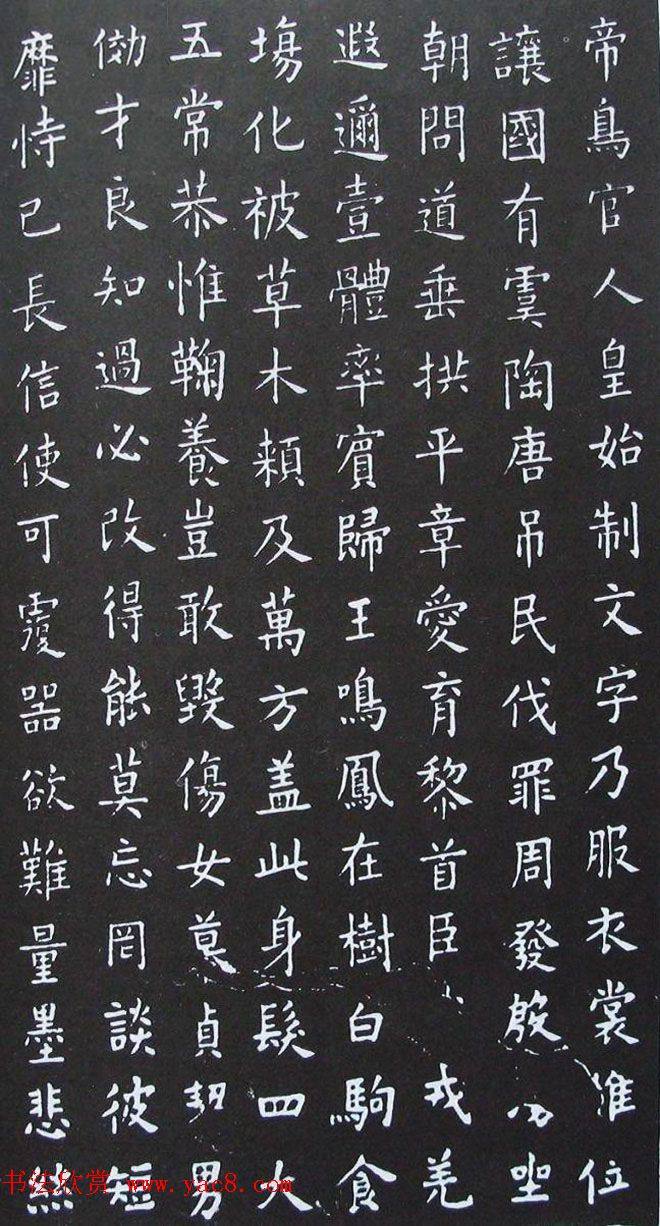 帝鳥官人皇始制文字乃服衣裳推位
讓國有虞陶唐吊民伐罪周發殷 坐
朝問道垂拱平章愛育黎首臣 戎羌
遐邇壹體率賓歸王鳴鳳在樹白駒食
塲化被草木頼及萬方盖此身髮四大
五常恭惟鞠養豈敢毀傷女莫貞 男
効才良知過必改得能莫忘罔談彼短
靡恃己長信使可覆器欲難量墨悲
书法欣赏 www.yac8.com